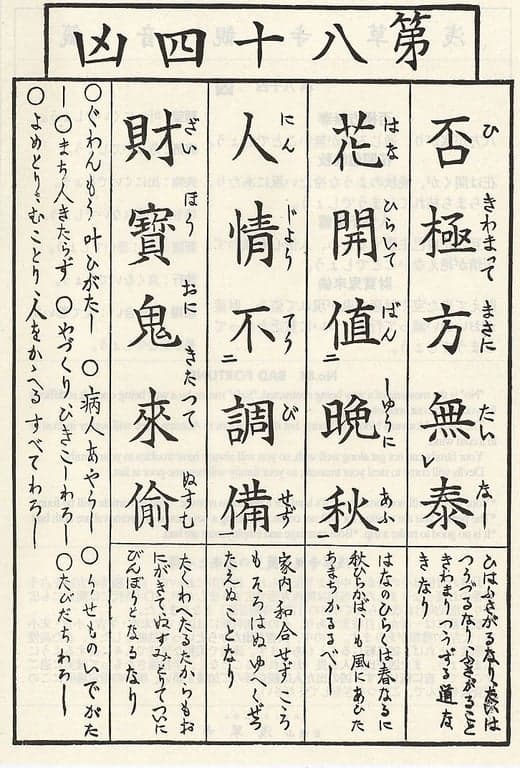 第八十四凶
否極方無泰
ひ きわまって まさに たい な
花開値晩秋
はな ひらいて ばん しゆうに あふ
人情不調備
にん じよう てう び せず
財寶鬼來偷
ざい ほう おに きたつて ぬすむ
ひはふさがるなりたいは
つうづるなりふさがること
きわまつてつうずる道な
きなり
はなのひらくは春なるに
秋ひらかば も風にあひた
ちまちかるるべし
家内和合せずこころ
もそろはぬゆへくぜつ
たえぬことなり
たくわへたるたからもお
にがきてぬすみとりついに
びんぼうとなるなり
○ぐわんもう叶ひがたし ○病人あやうし ○うせものいでがた
し○まち人きたらず ○やづくりひきこしわろし ○たびだちわろし
○よめとり、むことり、人をかゝへるすべてわろし